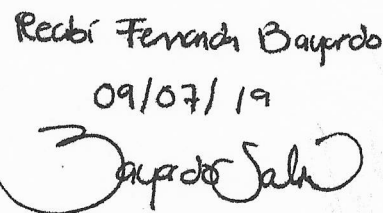 Recibí Fernanda Bayardo
09/07/19
Bayardo Sal